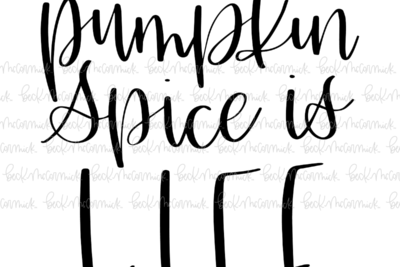 pumpkin
spice is
LIFE